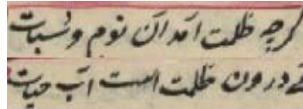 گرچه ظلمت آمد آن نوم و سبات
نے درون ظلمت است آب حیات